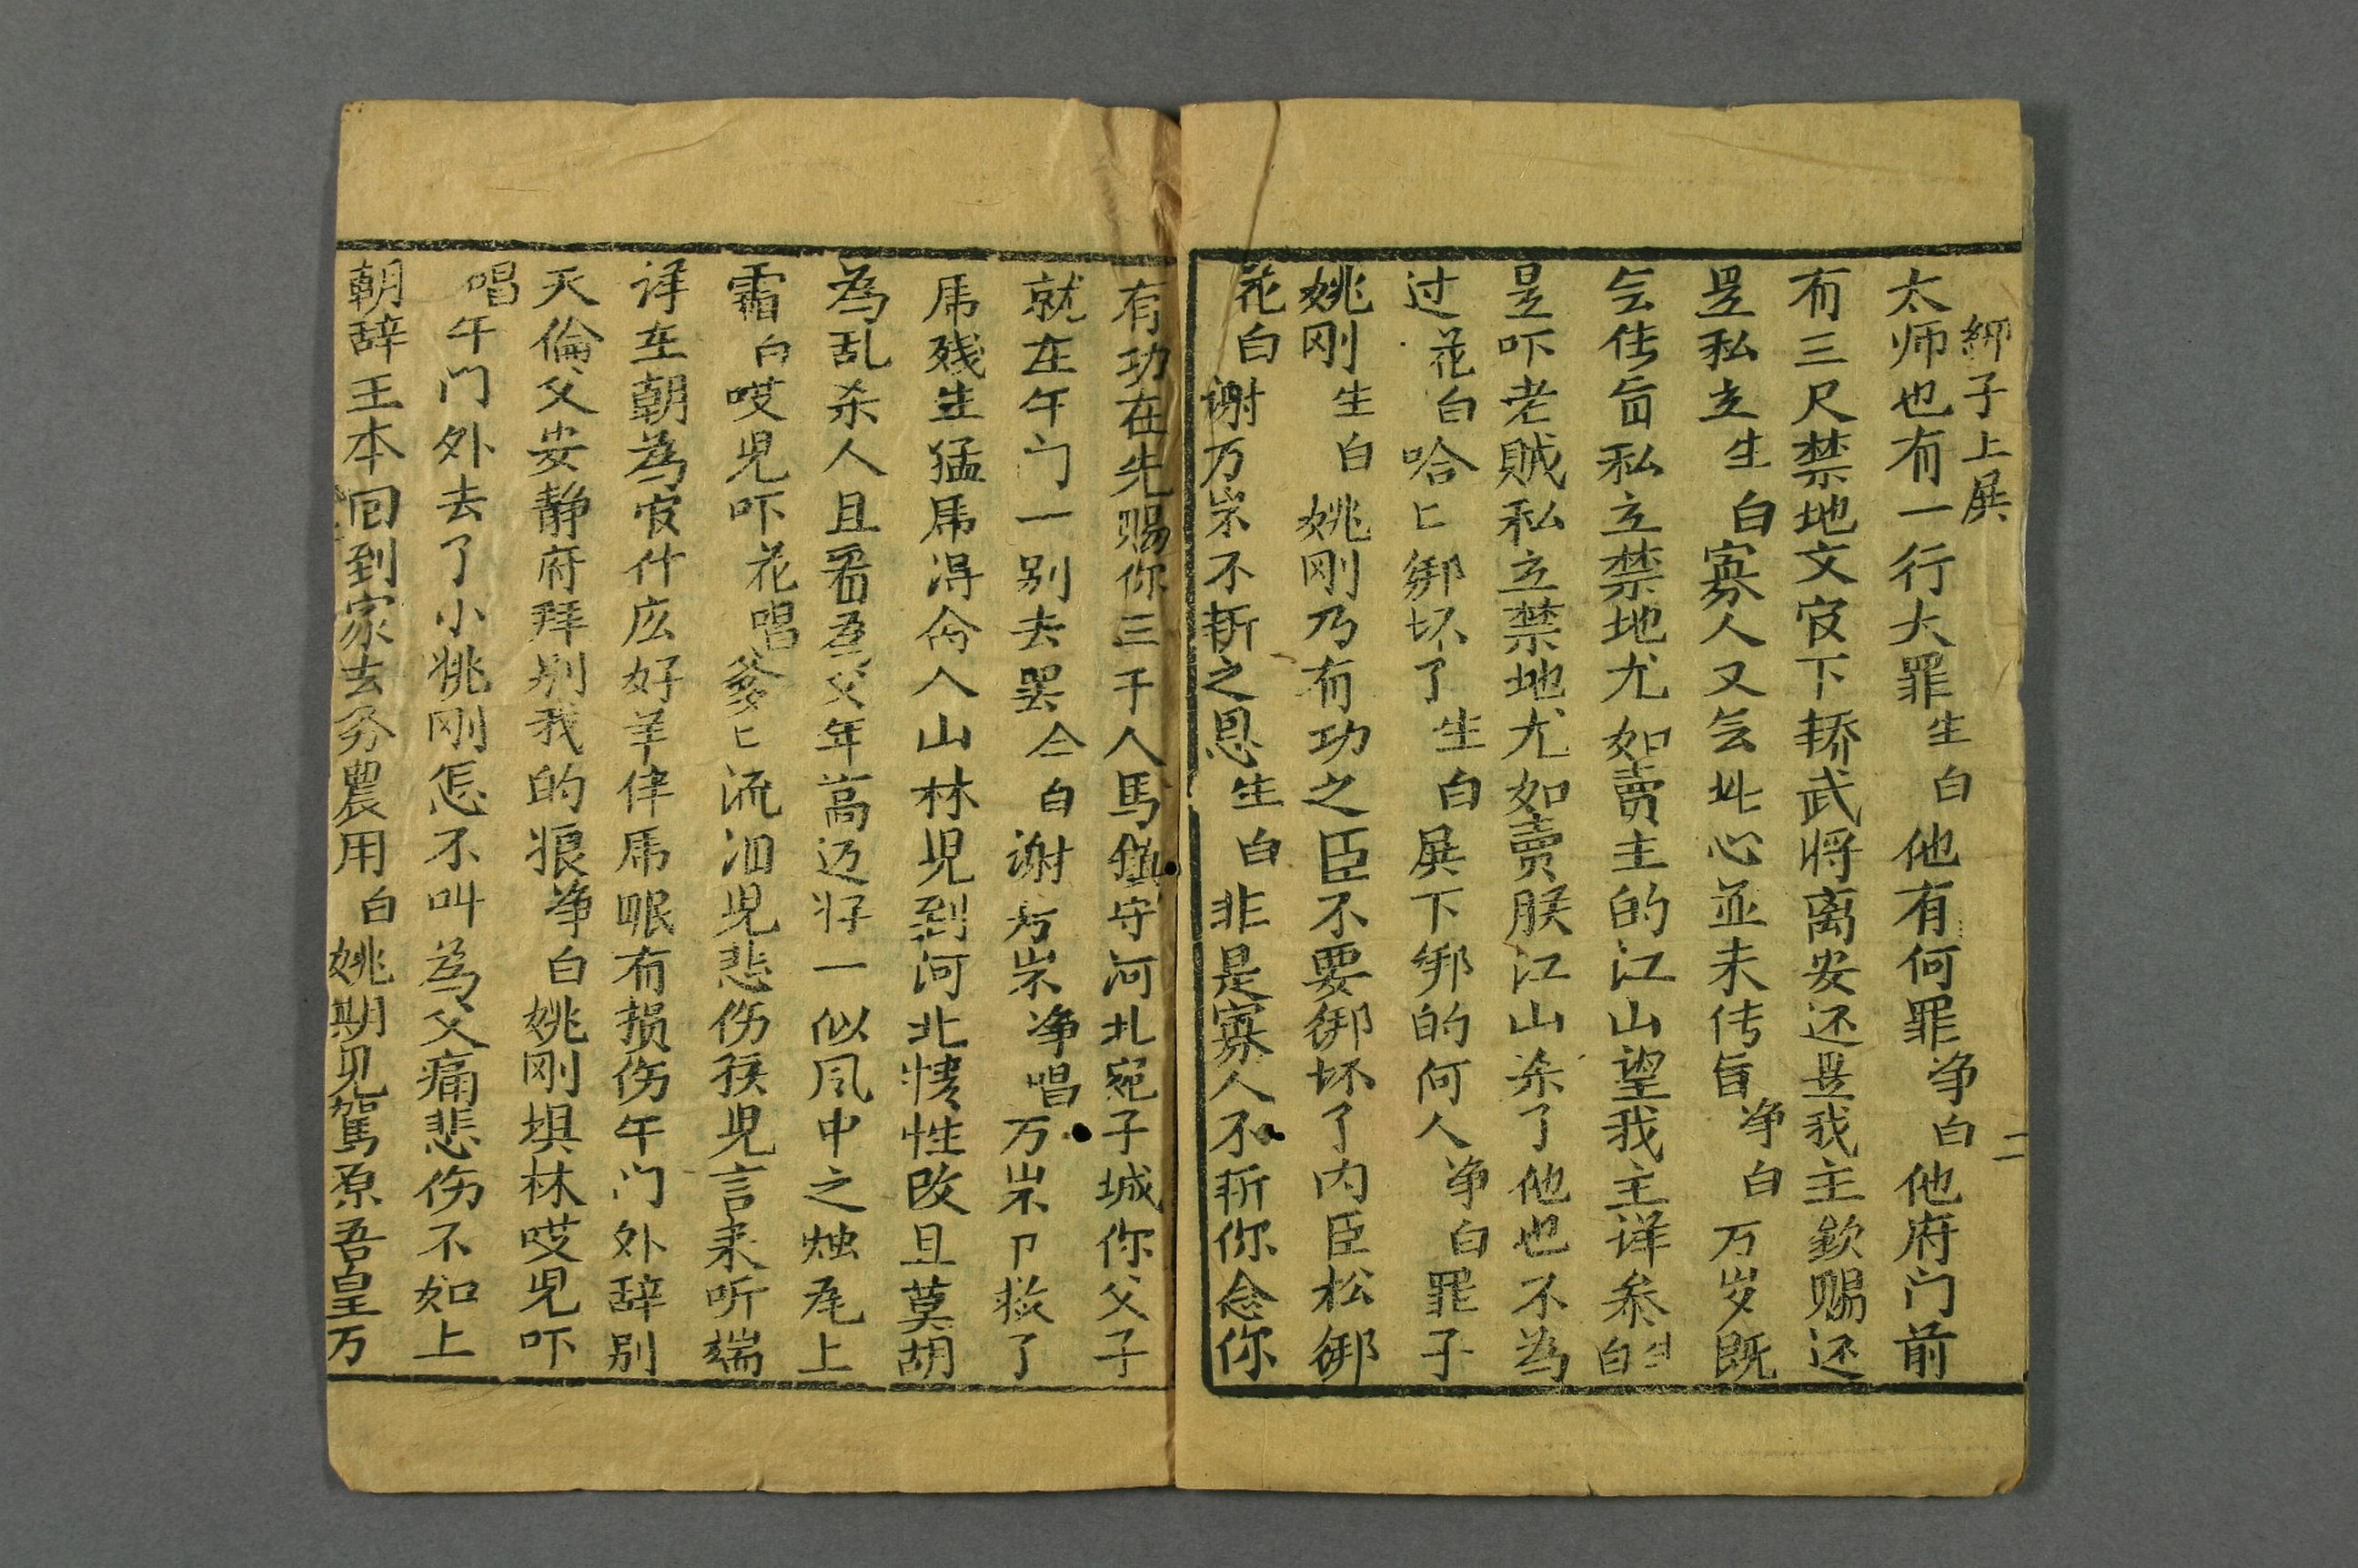 綁子上殿
二
太师也有一行大罪生白他有何罪净白他府门前
有三尺禁地文官下轿武将离安还是我主欽赐还
是私立生白寡人又乞此心並未传旨净白万岁既
乞传旨私立禁地尤如賣主的江山望我主详叅白
是吓老贼私立禁地尤如賣朕江山杀了他也不為
过花白哈匕綁坏了生白殿下綁的何人净白罪子
姚刚生白姚刚乃有功之臣不要綁坏了内臣松綁
花白谢万岁不斬之恩生白非是寡人不斬你念你
有功在先赐你三千人馬鎮守河北宛子城你父子
就在午门一别去罢仝白谢万岁净唱万岁卩救了
虎残生猛虎得命入山林児到河北情性改且莫胡
為乱杀人且看為父年高迈好一似风中之烛尾上
霜白哎児吓花唱爹匕流泪児悲伤孩児言来听端
详在朝為官什庅好羊伴虎眠有损伤午门外辞别
天倫父安静府拜别我的狼净白姚刚埧林哎児吓
唱午门外去了小姚刚怎不叫為父痛悲伤不如上
朝辞王本回到家去务農用白姚期见駕原吾皇万